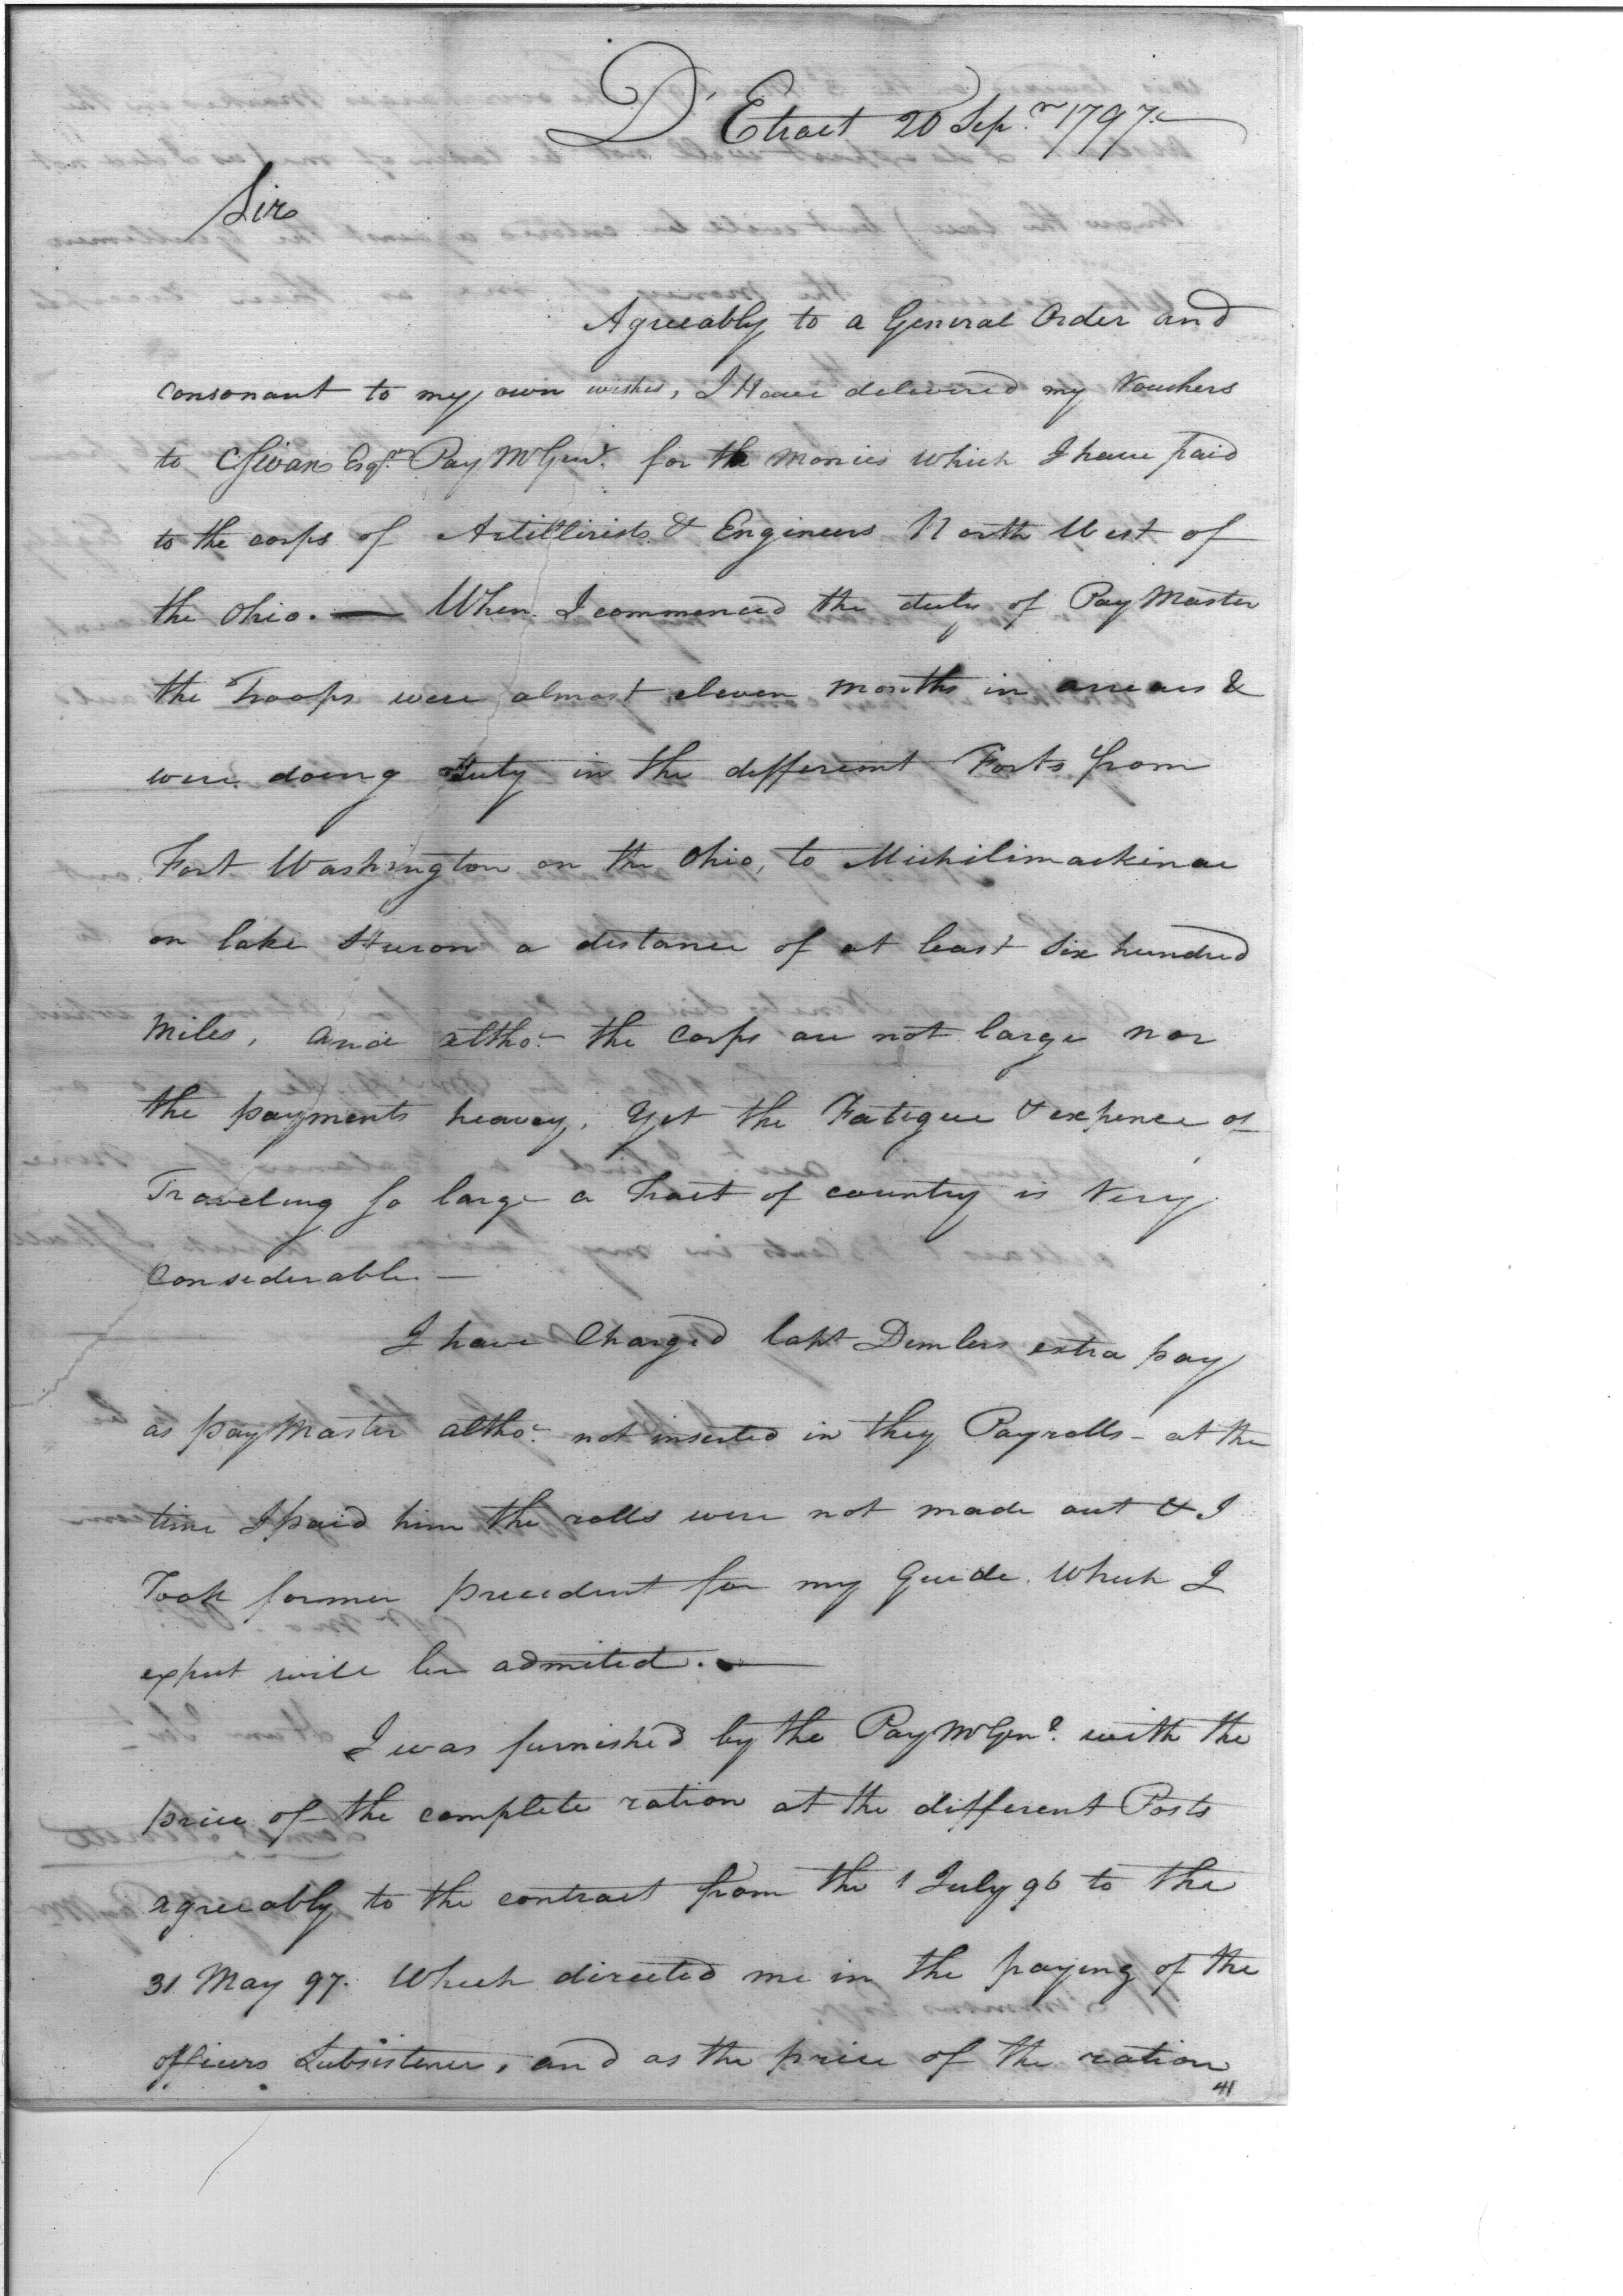 D'Etroit 20 Sepr. 1797.
Sir
Agreeably to a General Order and
consonant to my own wishes, I Have delivered my Vouchers
to C Swan Esqr. Pay Mr Genl. for the Monies which I have paid
to the corps of Artillirists & Engineers North West of
the Ohio. — When I commenced the duty of Pay Master
the Troops were almost eleven Months in arrears &
were doing duty in the different Forts from
Fort Washington on the Ohio, to Michilimackinac
on lake Huron a distance of at least Six hundred
Miles, and altho' the Corps are not large nor
the payments heavey, yet the Fatigue & expence of
Traveling so large a Tract of country is Very
Considerable —
I have Charged Capt Demlers extra pay
as pay Master altho' not inserted in they Payrolls - at the
time I paid him the rolls were not made out & I
Took former precedent for my Guide. Which I
expect will be admited. —
I was furnished by the Pay Mr Genl. with the
price of the complete ration at the different Posts
agreeably to the contract from the 1 July 96 to the
31 May 97. Which directed me in the paying of the
officers Subsistence, and as the price of the ration
41